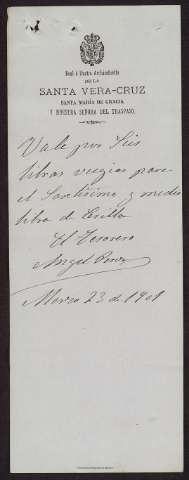 Real é Ilustre Archicofradía
DE LA
SANTA VERA-CRUZ
SANTA MARÍA DE GRACIA
Y NUESTRA SEÑORA DEL TRASPASO.
Vale por Seis
libras viejas para
el Santísimo y media
libra de
El Tesorero
Angel Perez
Marzo 23 de 1901